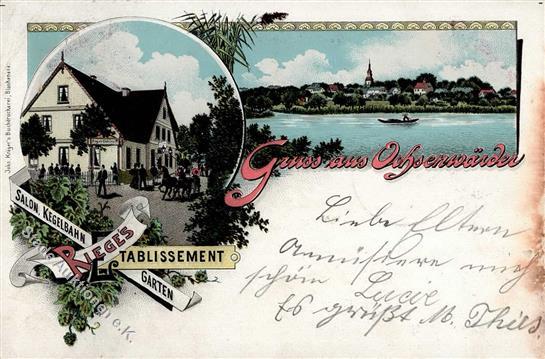 Gruss aus Ochsenwärder
Johs. Kröger's Buchdruckerei, Blankenese.
SALON, KEGELBAHN
RIEGE'S
ETABLISSEMENT
GARTEN
Liebe Eltern
Amüsiere mich
schön
Lucie
Es grüßt M. Thies